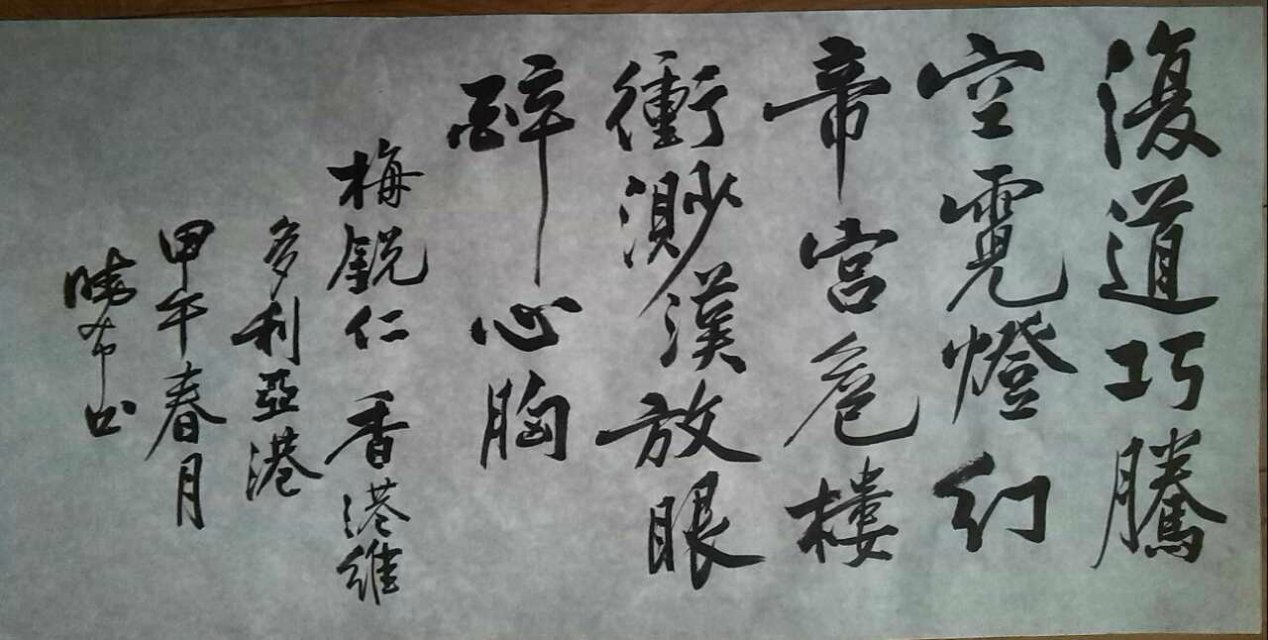 復道巧騰
空霓燈幻
帝宮危樓
衝渺漢放眼
醉心胸
梅銳仁香港維
多利亞港
甲午春月
書